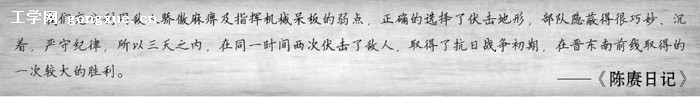 工学网
我们
骄傲麻痹及指挥机械呆板的弱点，正确的选择了伏击地形，部队隐蔽得很巧妙、沉
着，严守纪律，所以三天之内，在同一时间两次伏击了敌人，取得了抗日战争初期，在晋东南前线取得的
一次较大的胜利。
——《陈赓日记》